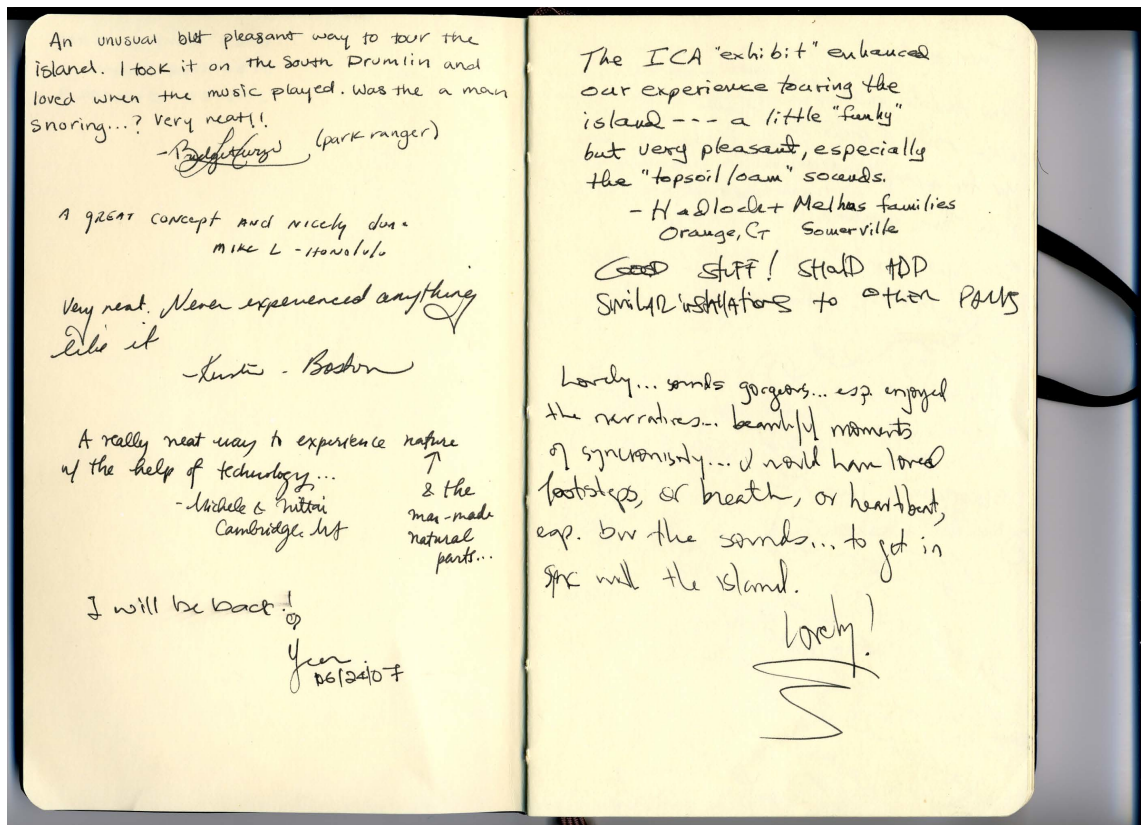 An unusual but pleasant way to tour the
island. I took it on the South Drumlin and
loved when the music played. Was the a man
snoring...? Very neat!!
(park ranger)
A GREAT CONCEPT AND NICELY done
MIKE L - HONOLULU
Very neat. Never experienced anything
like it
- Kirstin - Boston
A really neat way to experience nature
w/ the help of technology...
- Michele &
Cambridge, MA
↑
& the
man-made
natural
parts...
I will be back!
06/24/07
The ICA "exhibit" enhanced
our experience touring the
island --- a little "funky"
but very pleasant, especially
the "topsoil/loam" sounds.
- Hadlock + Melhas families
Orange, CT Somerville
GOOD STUFF! SHOULD ADD
SIMILAR installations to other PARKS
Lovely... sounds gorgeous... esp. enjoyed
the narratives... beautiful moments
of syncronisity... I would have loved
footsteps, or breath, or heartbeat,
esp. btw the sounds... to get in
sync with the island.
Lovely!